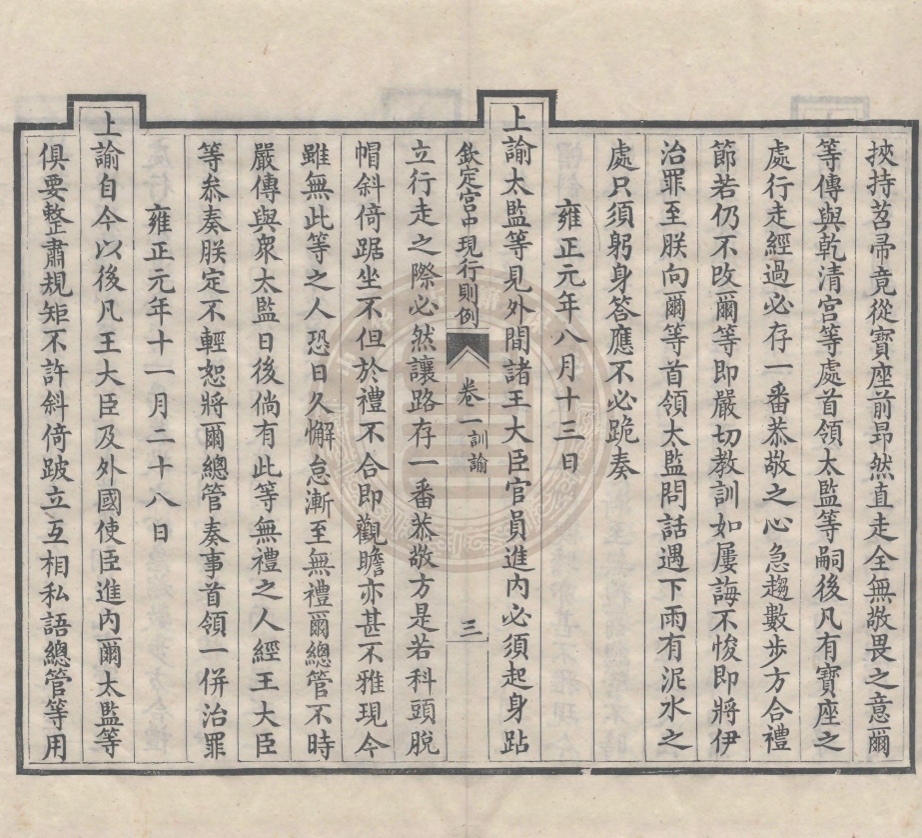 挾持苕帚竟從寶座前昂然直走全無敬畏之意爾
等傳與乾清宫等處首領太監等嗣後凡有寶座之
處行走經過必存一番恭敬之心急趨數步方合禮
節若仍不改爾等即嚴切教訓如屢誨不悛即將伊
治罪至朕向爾等首領太監問話遇下雨有泥水之
處只須躬身答應不必跪奏
雍正元年八月十三日
上諭太監等見外間諸王大臣官員進內必須起身跕
欽定宫中現行則例
卷一訓諭
三
立行走之際必然讓路存一番恭敬方是若科頭脫
帽斜倚踞坐不但於禮不合即觀瞻亦甚不雅現今
雖無此等之人恐日久懈怠漸至無禮爾總管不時
嚴傳與衆太監日後倘有此等無禮之人經王大臣
等叅奏朕定不輕恕將爾總管奏事首領一併治罪
雍正元年十一月二十八日
上諭自今以後凡王大臣及外國使臣進內爾太監等
俱要整肅規矩不許斜倚跛立互相私語總管等用